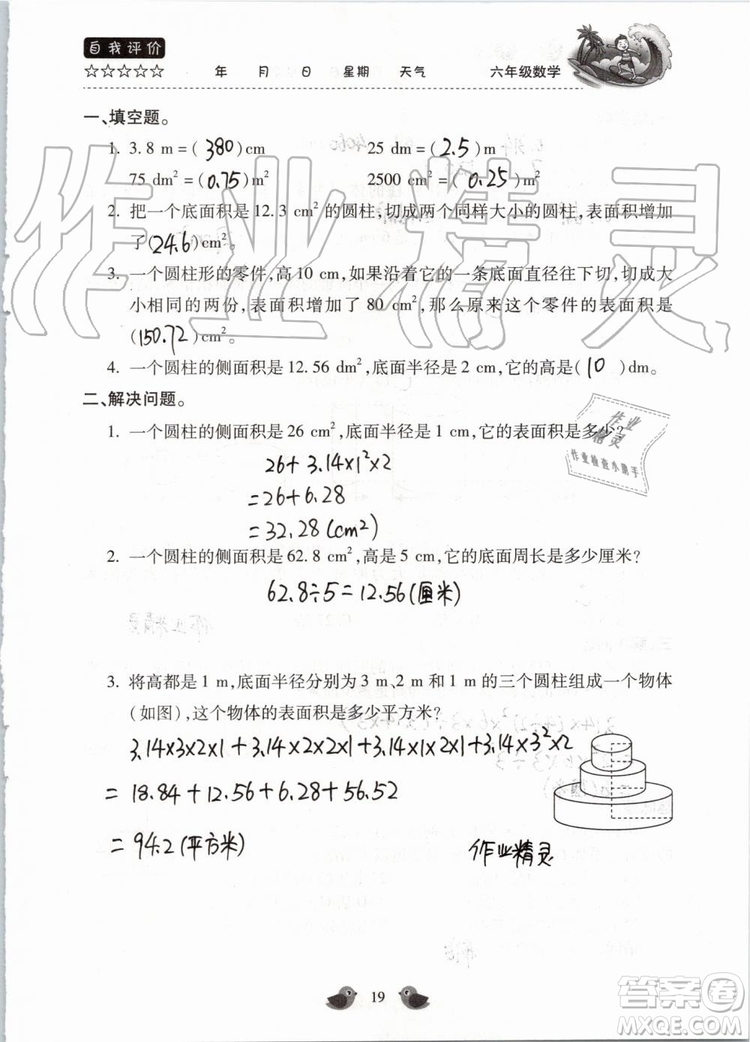 自我评价
☆☆☆☆☆ 年 月 日 星期 天气 六年级数学
一、填空题。
1. 3.8 m=(380)cm 25 dm=(2.5)m
75 dm²=(0.75)m² 2500 cm²=(0.25)m²
2. 把一个底面积是12.3 cm²的圆柱,切成两个同样大小的圆柱,表面积增加
了(24.6)cm²。
3. 一个圆柱形的零件,高10 cm,如果沿着它的一条底面直径往下切,切成大
小相同的两份,表面积增加了80 cm²,那么原来这个零件的表面积是
(150.72)cm²。
4. 一个圆柱的侧面积是12.56 dm²,底面半径是2 cm,它的高是(10)dm。
二、解决问题。
1. 一个圆柱的侧面积是26 cm²,底面半径是1 cm,它的表面积是多少?
26+3.14×1²×2
=26+6.28
=32.28(cm²)
2. 一个圆柱的侧面积是62.8 cm²,高是5 cm,它的底面周长是多少厘米?
62.8÷5=12.56(厘米)
3. 将高都是1 m,底面半径分别为3 m、2 m和1 m的三个圆柱组成一个物体
(如图),这个物体的表面积是多少平方米?
3.14×3×2×1+3.14×2×2×1+3.14×1×2×1+3.14×3²×2
=18.84+12.56+6.28+56.52
=94.2(平方米)
作业精灵
19
作业精灵
作业
精灵
作业检查小助手
答案圈
MXQE.COM